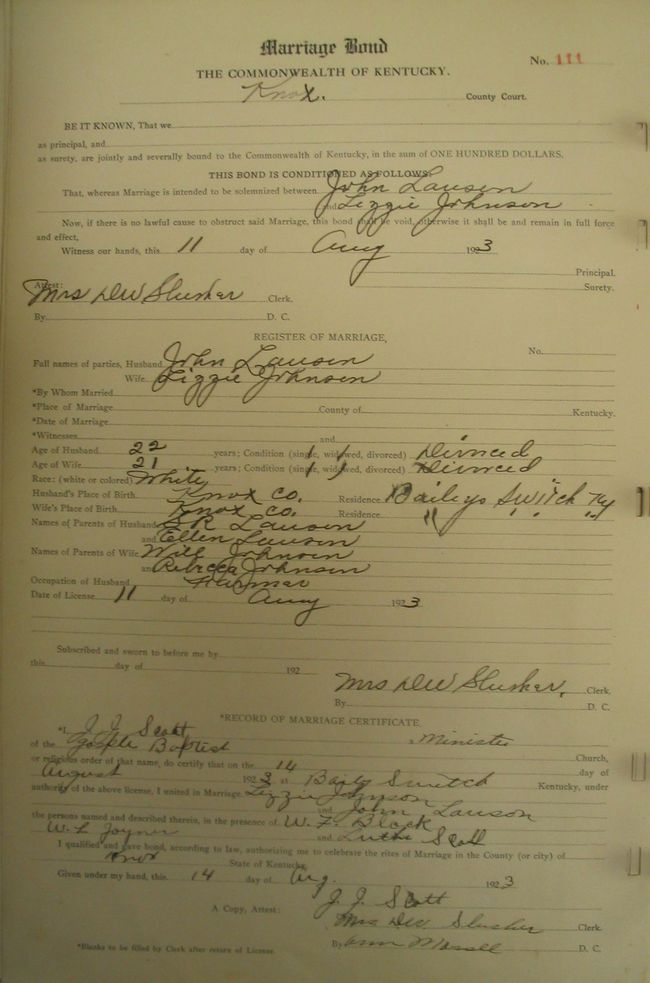 Marriage Bond
No. 111
THE COMMONWEALTH OF KENTUCKY.
Knox. County Court.
BE IT KNOWN, That we
as principal, and
as surety, are jointly and severally bound to the Commonwealth of Kentucky, in the sum of ONE HUNDRED DOLLARS.
THIS BOND IS CONDITIONED AS FOLLOWS:
That, whereas Marriage is intended to be solemnized between John Lawson
and Lizzie Johnson
Now, if there is no lawful cause to obstruct said Marriage, this bond shall be void, otherwise it shall be and remain in full force
and effect,
Witness our hands, this 11 day of Aug 1923
Principal.
Surety.
Attest:
Mrs DW Slusher Clerk.
By D. C.
REGISTER OF MARRIAGE,
No.
Full names of parties, Husband John Lawson
Wife Lizzie Johnson
*By Whom Married
*Place of Marriage County of Kentucky.
*Date of Marriage
*Witnesses and
Age of Husband 22 years; Condition (single, widowed, divorced) Divorced
Age of Wife 21 years; Condition (single, widowed, divorced) Divorced
Race: (white or colored) White
Husband's Place of Birth Knox Co. Residence Baileys Switch Ky
Wife's Place of Birth Knox Co. Residence " " "
Names of Parents of Husband Lawson
and Ellen Lawson
Names of Parents of Wife Will Johnson
and Rebecca Johnson
Occupation of Husband Farmar
Date of License 11 day of Aug 1923
Subscribed and sworn to before me by
this day of 192
Mrs DW Slusher, Clerk.
By D. C.
*RECORD OF MARRIAGE CERTIFICATE.
*I, J. J. Scott a Minister
of the Baptist Church,
or religious order of that name, do certify that on the 14 day of
August 1923, at Baily Switch Kentucky, under
authority of the above license, I united in Marriage Lizzie Johnson
and John Lawson
the persons named and described therein, in the presence of W. F. Black
W. L Joyner and Scott
I qualified and gave bond, according to law, authorizing me to celebrate the rites of Marriage in the County (or city) of
Knox State of Kentucky.
Given under my hand, this 14 day of Aug. 1923
J. J. Scott
A Copy, Attest: Mrs DW. Slusher Clerk.
*Blanks to be filled by Clerk after return of License. By D. C.